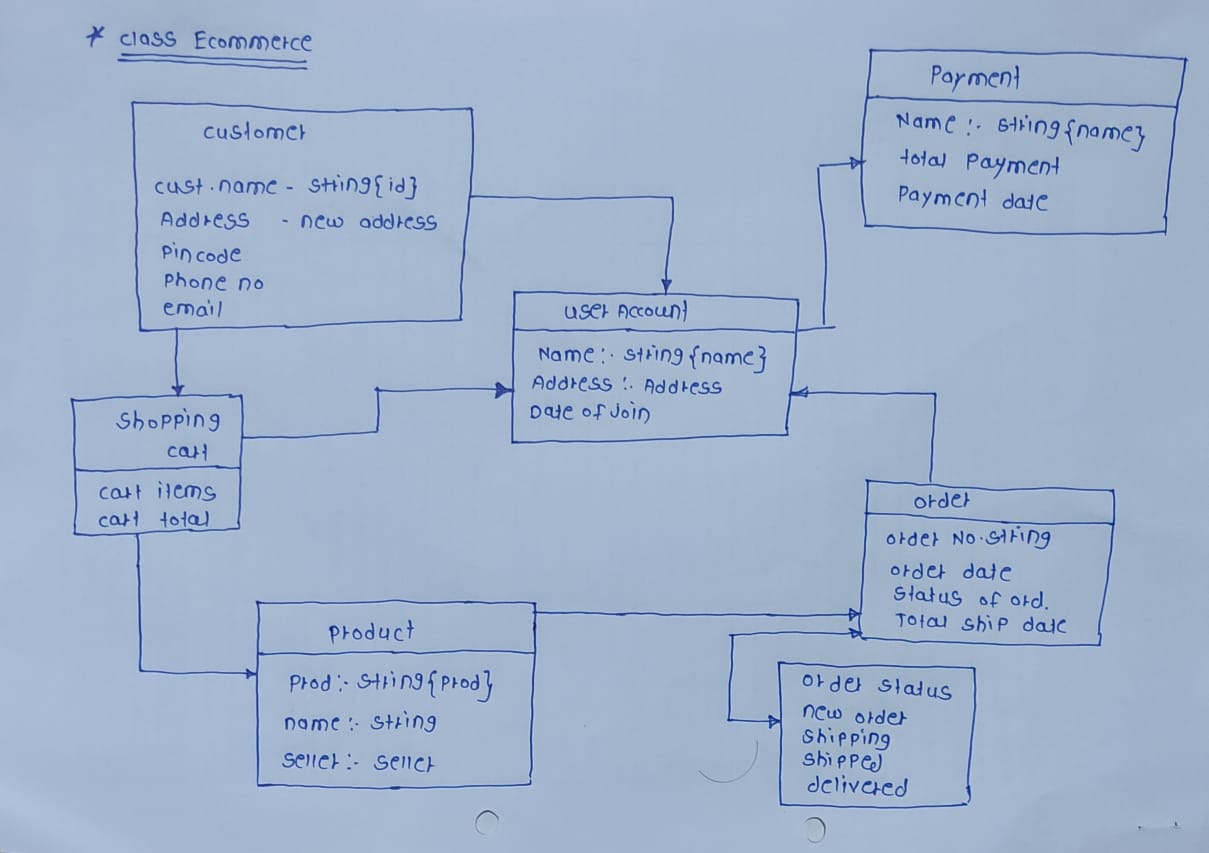 * class Ecommerce
customer
cust.name - string{id}
Address - new address
Pincode
Phone no
email
Payment
Name :- string{name}
total Payment
Payment date
user Account
Name :- string{name}
Address :- Address
Date of Join
Shopping
cart
cart items
cart total
order
order No.string
order date
status of ord.
Total ship date
Product
Prod :- string{Prod}
name :- string
seller :- seller
order status
new order
shipping
shipped
delivered